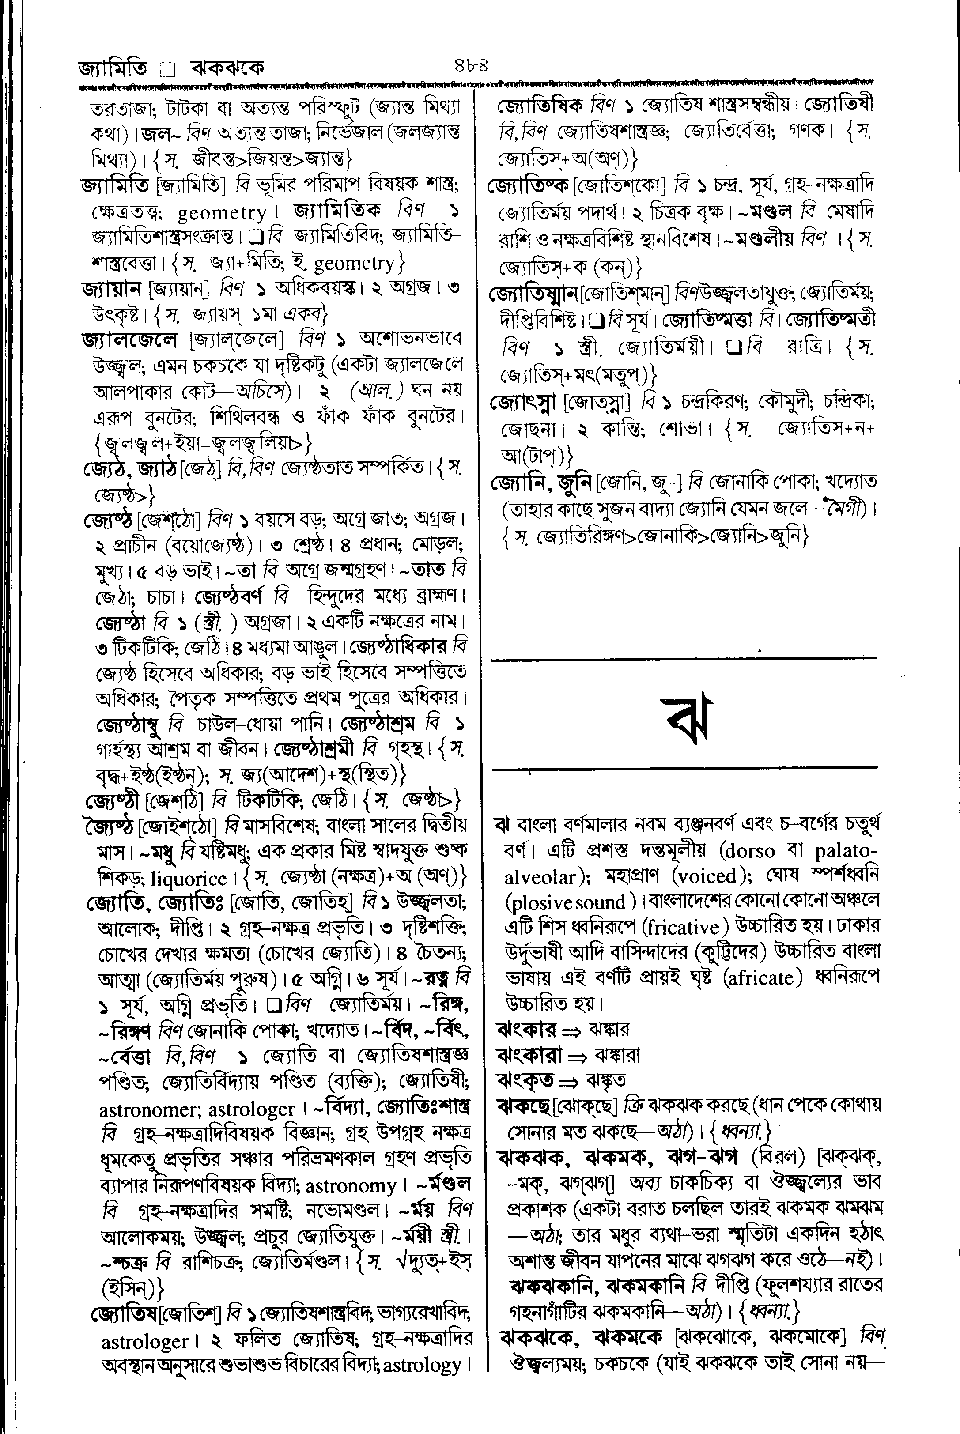 জ্যামিতি □ ঝকঝকে
৪৮৪
তরতাজা; টাটকা বা অত্যন্ত পরিস্ফুট (জ্যান্ত মিথ্যা
কথা)। জল~ বিণ অত্যন্ত তাজা; নির্ভেজাল (জলজ্যান্ত
মিথ্যা)। {স. জীবন্ত>জিয়ন্ত>জ্যান্ত}
জ্যামিতি [জ্যামিতি] বি ভূমির পরিমাপ বিষয়ক শাস্ত্র;
ক্ষেত্রতত্ত্ব; geometry। জ্যামিতিক বিণ ১
জ্যামিতিশাস্ত্রসংক্রান্ত। □ বি জ্যামিতিবিদ; জ্যামিতি–
শাস্ত্রবেত্তা। {স. জ্যা+মিতি; ই. geometry}
জ্যায়ান [জ্যায়ান্] বিণ ১ অধিকবয়স্ক। ২ অগ্রজ। ৩
উৎকৃষ্ট। {স. জ্যায়স্ ১মা একব}
জ্যালজেলে [জ্যাল্‌জেলে] বিণ ১ অশোভনভাবে
উজ্জ্বল; এমন চকচকে যা দৃষ্টিকটু (একটা জ্যালজেলে
আলপাকার কোট—অচিসে)। ২ (আল.) ঘন নয়
এরূপ বুনটের; শিথিলবন্ধ ও ফাঁক ফাঁক বুনটের।
{জ্বলজ্বল+ইয়া–জ্বলজ্বলিয়া>}
জ্যেঠ, জ্যাঠ [জেঠ্] বি,বিণ জ্যেষ্ঠতাত সম্পর্কিত। {স.
জ্যেষ্ঠ>}
জ্যেষ্ঠ [জেশ্‌ঠো] বিণ ১ বয়সে বড়; অগ্রে জাত; অগ্রজ।
২ প্রাচীন (বয়োজ্যেষ্ঠ)। ৩ শ্রেষ্ঠ। ৪ প্রধান; মোড়ল;
মুখ্য। ৫ বড় ভাই। ~তা বি অগ্রে জন্মগ্রহণ। ~তাত বি
জেঠা; চাচা। জ্যেষ্ঠবর্ণ বি হিন্দুদের মধ্যে ব্রাহ্মণ।
জ্যেষ্ঠা বি ১ (স্ত্রী.) অগ্রজা। ২ একটি নক্ষত্রের নাম।
৩ টিকটিকি; জেঠি। ৪ মধ্যমা আঙুল। জ্যেষ্ঠাধিকার বি
জ্যেষ্ঠ হিসেবে অধিকার; বড় ভাই হিসেবে সম্পত্তিতে
অধিকার; পৈতৃক সম্পত্তিতে প্রথম পুত্রের অধিকার।
জ্যেষ্ঠাম্বু বি চাউল–ধোয়া পানি। জ্যেষ্ঠাশ্রম বি ১
গার্হস্থ্য আশ্রম বা জীবন। জ্যেষ্ঠাশ্রমী বি গৃহস্থ। {স.
বৃদ্ধ+ইষ্ঠ(ইষ্ঠন্); স. জ্য(আদেশ)+স্থ(স্থিত)}
জ্যেষ্ঠী [জেশ্‌ঠি] বি টিকটিকি; জেঠি। {স. জ্যেষ্ঠা>}
জ্যৈষ্ঠ [জোইশ্‌ঠো] বি মাসবিশেষ; বাংলা সালের দ্বিতীয়
মাস। ~মধু বি যষ্টিমধু; এক প্রকার মিষ্ট স্বাদযুক্ত শুষ্ক
শিকড়; liquorice। {স. জ্যেষ্ঠা (নক্ষত্র)+অ (অণ্)}
জ্যোতি, জ্যোতিঃ [জোতি, জোতিহ্] বি ১ উজ্জ্বলতা;
আলোক; দীপ্তি। ২ গ্রহ–নক্ষত্র প্রভৃতি। ৩ দৃষ্টিশক্তি;
চোখের দেখার ক্ষমতা (চোখের জ্যোতি)। ৪ চৈতন্য;
আত্মা (জ্যোতির্ময় পুরুষ)। ৫ অগ্নি। ৬ সূর্য। ~রত্ন বি
১ সূর্য, অগ্নি প্রভৃতি। □ বিণ জ্যোতির্ময়। ~রিঙ্গ,
~রিঙ্গণ বিণ জোনাকি পোকা; খদ্যোত। ~র্বিদ, ~র্বিৎ,
~র্বেত্তা বি,বিণ ১ জ্যোতি বা জ্যোতিষশাস্ত্রজ্ঞ
পণ্ডিত; জ্যোতির্বিদ্যায় পণ্ডিত (ব্যক্তি); জ্যোতিষী;
astronomer; astrologer। ~র্বিদ্যা, জ্যোতিঃশাস্ত্র
বি গ্রহ–নক্ষত্রাদিবিষয়ক বিজ্ঞান; গ্রহ উপগ্রহ নক্ষত্র
ধূমকেতু প্রভৃতির সঞ্চার পরিভ্রমণকাল গ্রহণ প্রভৃতি
ব্যাপার নিরূপণবিষয়ক বিদ্যা; astronomy। ~র্মণ্ডল
বি গ্রহ–নক্ষত্রাদির সমষ্টি; নভোমণ্ডল। ~র্ময় বিণ
আলোকময়; উজ্জ্বল; প্রচুর জ্যোতিযুক্ত। ~র্ময়ী স্ত্রী.।
~শ্চক্র বি রাশিচক্র; জ্যোতির্মণ্ডল। {স. √দ্যুত্+ইস্
(ইসিন্)}
জ্যোতিষ [জোতিশ্] বি ১ জ্যোতিষশাস্ত্রবিদ; ভাগ্যরেখাবিদ;
astrologer। ২ ফলিত জ্যোতিষ; গ্রহ–নক্ষত্রাদির
অবস্থান অনুসারে শুভাশুভ বিচারের বিদ্যা; astrology।
জ্যোতিষিক বিণ ১ জ্যোতিষ শাস্ত্রসম্বন্ধীয়। জ্যোতিষী
বি,বিণ জ্যোতিষশাস্ত্রজ্ঞ; জ্যোতির্বেত্তা; গণক। {স.
জ্যোতিস্+অ(অণ্)}
জ্যোতিষ্ক [জোতিশ্‌কো] বি ১ চন্দ্র, সূর্য, গ্রহ–নক্ষত্রাদি
জ্যোতির্ময় পদার্থ। ২ চিত্রক বৃক্ষ। ~মণ্ডল বি মেষাদি
রাশি ও নক্ষত্রবিশিষ্ট স্থানবিশেষ। ~মণ্ডলীয় বিণ। {স.
জ্যোতিস্+ক (কন্)}
জ্যোতিষ্মান [জোতিশ্‌মান্] বিণ উজ্জ্বলতাযুক্ত; জ্যোতির্ময়;
দীপ্তিবিশিষ্ট। □ বি সূর্য। জ্যোতিষ্মত্তা বি। জ্যোতিষ্মতী
বিণ ১ স্ত্রী. জ্যোতির্ময়ী। □ বি রাত্রি। {স.
জ্যোতিস্+মৎ(মতুপ্)}
জ্যোৎস্না [জোত্‌স্না] বি ১ চন্দ্রকিরণ; কৌমুদী; চন্দ্রিকা;
জোছনা। ২ কান্তি; শোভা। {স. জ্যোতিস+ন+
আ(টাপ্)}
জ্যোনি, জুনি [জোনি, জু-] বি জোনাকি পোকা; খদ্যোত
(তাহার কাছে সুজন বাদ্যা জ্যোনি যেমন জলে—মৈগী)।
{স. জ্যোতিরিঙ্গণ>জোনাকি>জ্যোনি>জুনি}
ঝ
ঝ বাংলা বর্ণমালার নবম ব্যঞ্জনবর্ণ এবং চ–বর্গের চতুর্থ
বর্ণ। এটি প্রশস্ত দন্তমূলীয় (dorso বা palato-
alveolar); মহাপ্রাণ (voiced); ঘোষ স্পর্শধ্বনি
(plosive sound)। বাংলাদেশের কোনো কোনো অঞ্চলে
এটি শিস ধ্বনিরূপে (fricative) উচ্চারিত হয়। ঢাকার
উর্দুভাষী আদি বাসিন্দাদের (কুট্টিদের) উচ্চারিত বাংলা
ভাষায় এই বর্ণটি প্রায়ই ঘৃষ্ট (africate) ধ্বনিরূপে
উচ্চারিত হয়।
ঝংকার ⇒ ঝঙ্কার
ঝংকারা ⇒ ঝঙ্কারা
ঝংকৃত ⇒ ঝঙ্কৃত
ঝকছে [ঝোক্‌ছে] ক্রি ঝকঝক করছে (ধান পেকে কোথায়
সোনার মত ঝকছে—অঠা)। {ধ্বন্যা.}
ঝকঝক, ঝকমক, ঝগ–ঝগ (বিরল) [ঝক্‌ঝক্,
–মক্, ঝগ্‌ঝগ্] অব্য চাকচিক্য বা ঔজ্জ্বল্যের ভাব
প্রকাশক (একটা বরাত চলছিল তারই ঝকমক ঝমঝম
—অঠা; তার মধুর ব্যথা–ভরা স্মৃতিটা একদিন হঠাৎ
অশান্ত জীবন যাপনের মাঝে ঝগঝগ করে ওঠে—নই)।
ঝকঝকানি, ঝকমকানি বি দীপ্তি (ফুলশয্যার রাতের
গহনাগাঁটির ঝকমকানি—অঠা)। {ধ্বন্যা.}
ঝকঝকে, ঝকমকে [ঝক্‌ঝোকে, ঝক্‌মোকে] বিণ
ঔজ্জ্বল্যময়; চকচকে (যাই ঝকঝকে তাই সোনা নয়—